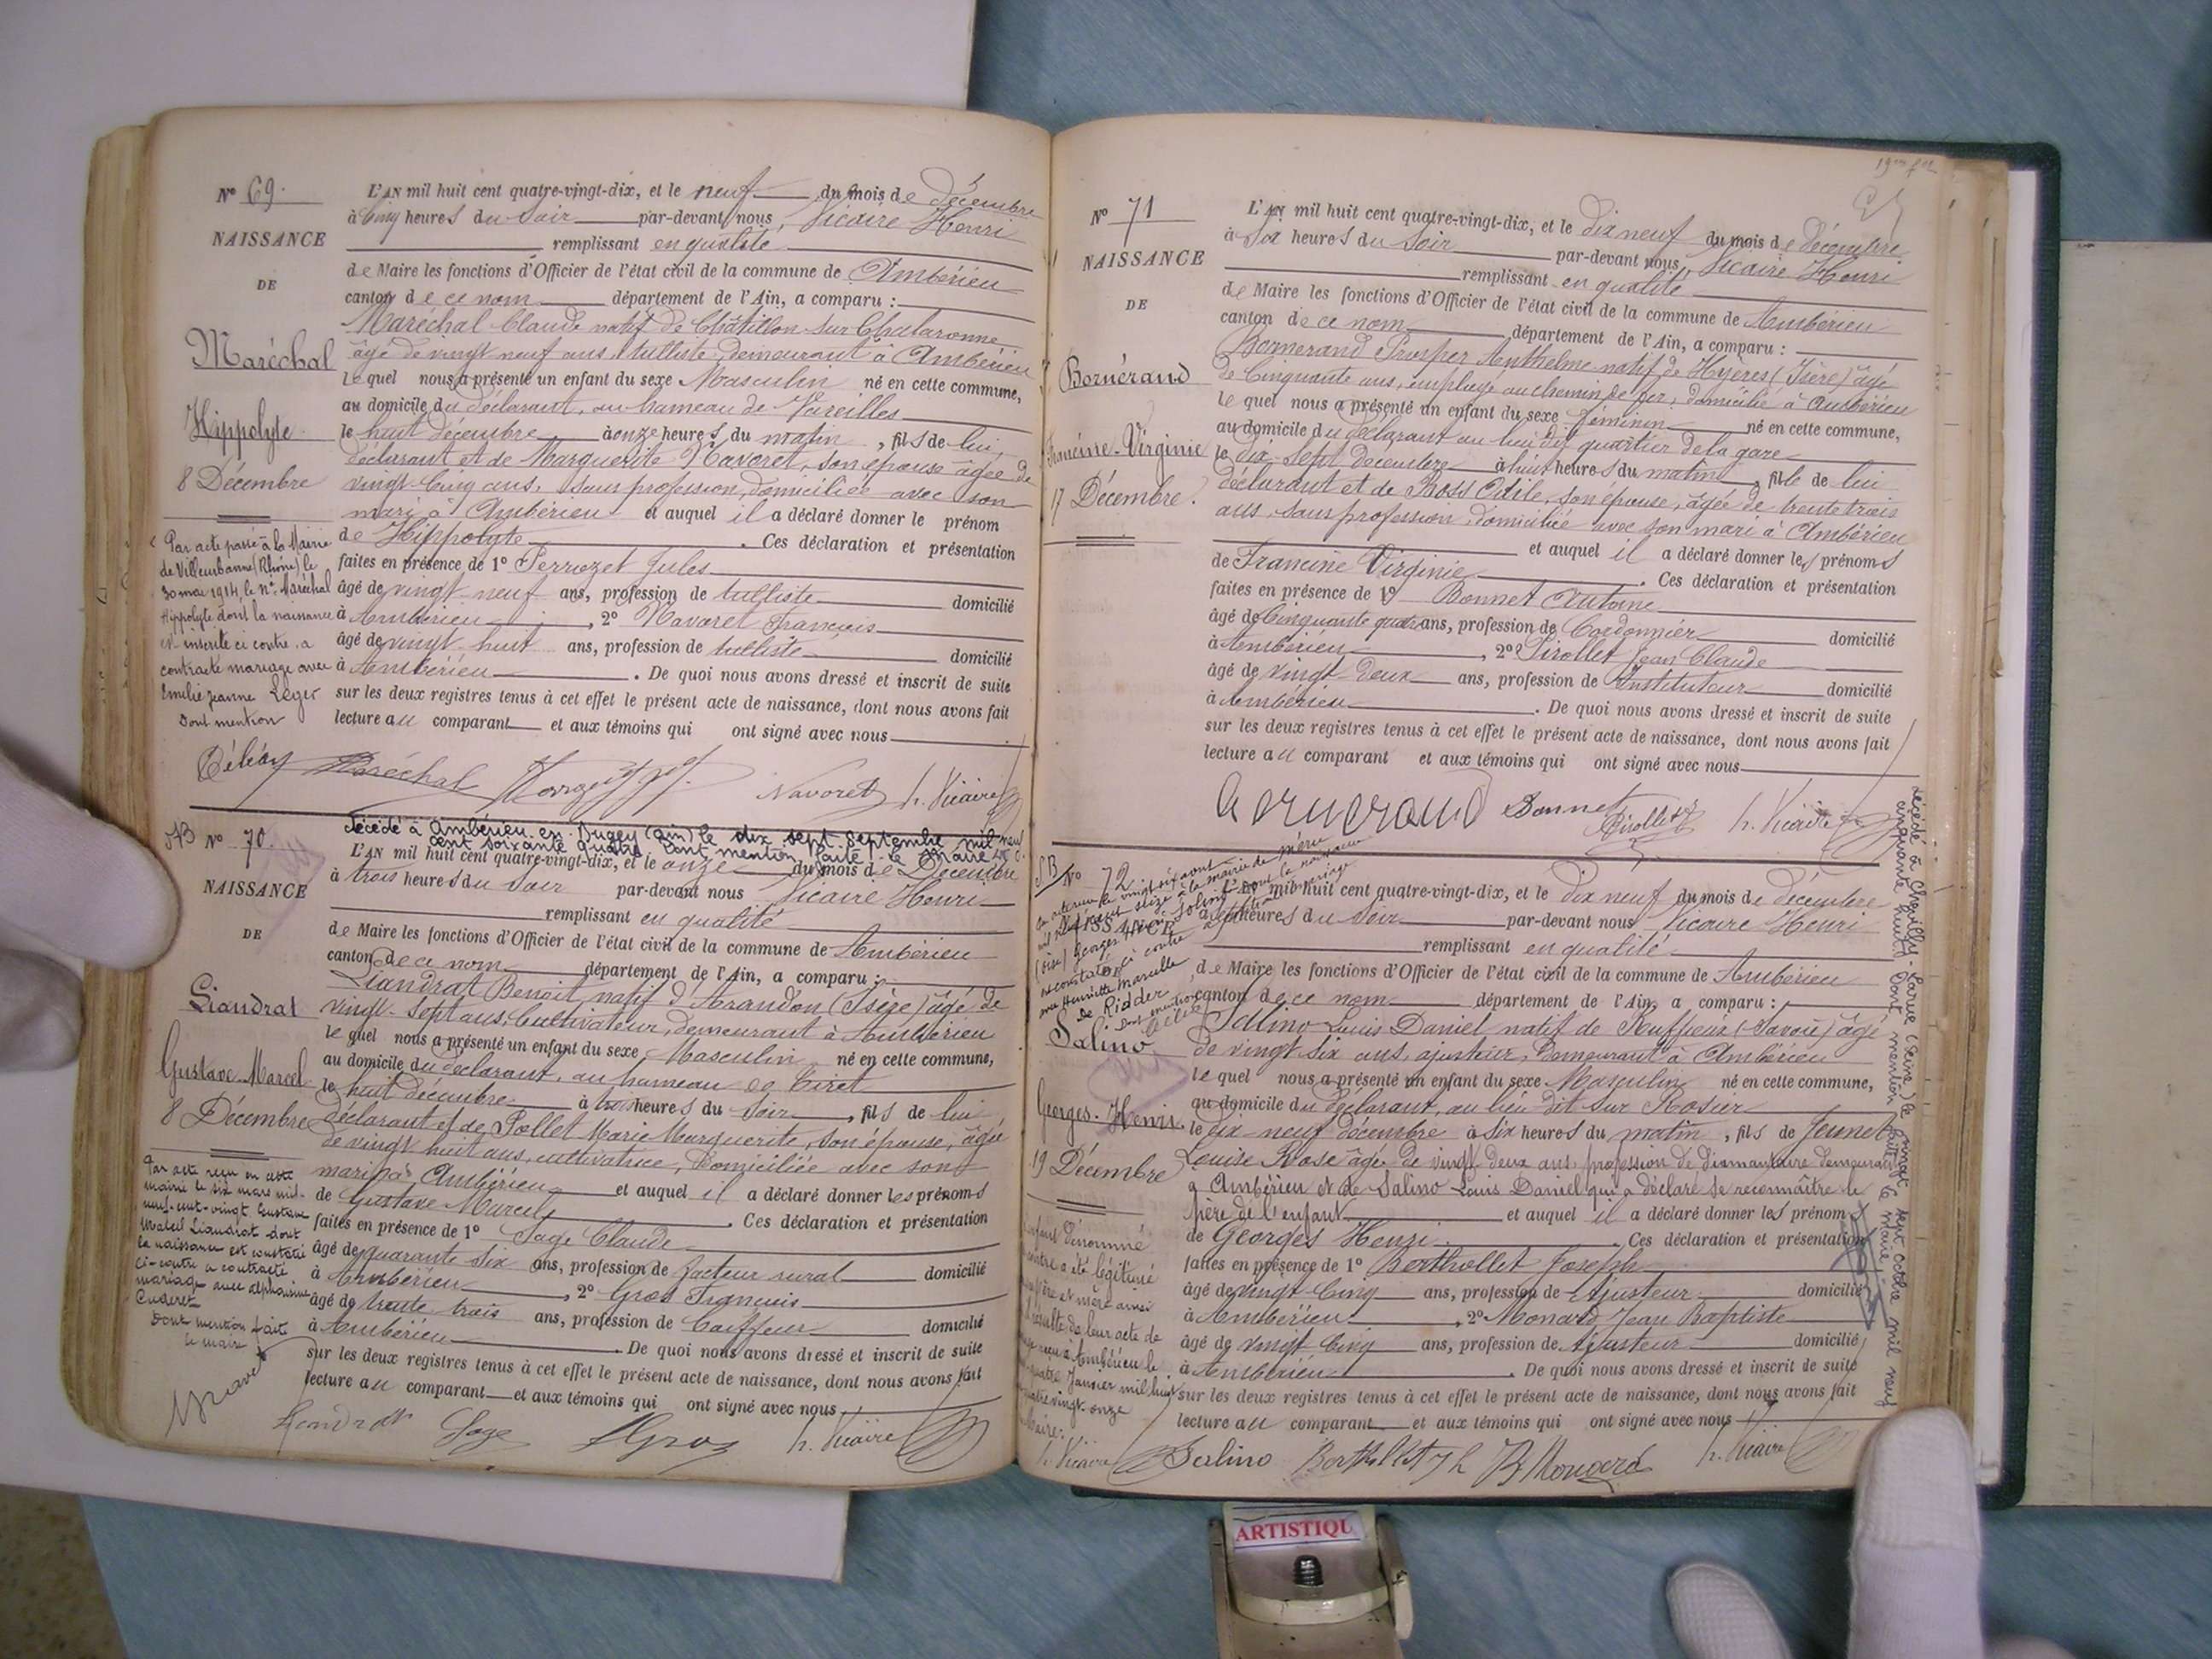 N° 69.
NAISSANCE
DE
Maréchal
Hippolyte
8 Décembre
Par acte passé à la Mairie
de Villeurbanne (Rhône) le
30 mai 1914, le né Maréchal
Hippolyte dont la naissance
est inscrite ci contre a
contracté mariage avec
Emilie Jeanne Léger
Dont mention
L'AN mil huit cent quatre-vingt-dix, et le neuf du mois de décembre
à Cinq heures du soir par-devant nous Vicaire Henri
remplissant en qualité
de Maire les fonctions d'Officier de l'état civil de la commune de Ambérieu
canton de ce nom département de l'Ain, a comparu :
Maréchal Claude natif de Châtillon sur Chalaronne
âgé de vingt neuf ans, tulliste, demeurant à Ambérieu
lequel nous a présenté un enfant du sexe Masculin né en cette commune,
au domicile du déclarant, au hameau de Vareilles
le huit décembre à onze heures du matin, fils de lui,
déclarant et de Marguerite Navoret, son épouse âgée de
vingt cinq ans, sans profession, domiciliée avec son
mari à Ambérieu et auquel il a déclaré donner le prénom
de Hippolyte. Ces déclaration et présentation
faites en présence de 1° Perrozet Jules
âgé de vingt neuf ans, profession de tulliste domicilié
à Ambérieu, 2° Navoret François
âgé de vingt huit ans, profession de tulliste domicilié
à Ambérieu. De quoi nous avons dressé et inscrit de suite
sur les deux registres tenus à cet effet le présent acte de naissance, dont nous avons fait
lecture au comparant et aux témoins qui ont signé avec nous
Maréchal Navoret h. Vicaire
N° 70.
NAISSANCE
DE
Liandrat
Gustave Marcel
8 Décembre
Par acte reçu en cette
mairie le six mars mil-
neuf-cent-vingt Gustave
Marcel Liandrat dont
la naissance est constatée
ci-contre a contracté
mariage avec Alphonsine
Cuderet
Dont mention faite
le maire
Décédé à Ambérieu-en-Bugey (Ain) le dix sept Septembre mil neuf
cent soixante quatre Dont mention faite le Maire
L'AN mil huit cent quatre-vingt-dix, et le onze du mois de Décembre
à trois heures du Soir par-devant nous Vicaire Henri
remplissant en qualité
de Maire les fonctions d'Officier de l'état civil de la commune de Ambérieu
canton de ce nom département de l'Ain, a comparu :
Liandrat Benoit, natif d'Arandon (Isère) âgé de
vingt-sept ans, Cultivateur, demeurant à Ambérieu
lequel nous a présenté un enfant du sexe Masculin né en cette commune,
au domicile du déclarant, au hameau de Tiret
le huit décembre à trois heures du Soir, fils de lui
déclarant et de Pollet Marie Marguerite, son épouse, âgée
de vingt huit ans, cultivatrice, Domiciliée avec son
mari à Ambérieu et auquel il a déclaré donner les prénoms
de Gustave Marcel. Ces déclaration et présentation
faites en présence de 1° Sage Claude
âgé de quarante six ans, profession de facteur rural domicilié
à Ambérieu, 2° Gros François
âgé de trente trois ans, profession de Coiffeur domicilié
à Ambérieu. De quoi nous avons dressé et inscrit de suite
sur les deux registres tenus à cet effet le présent acte de naissance, dont nous avons fait
lecture au comparant et aux témoins qui ont signé avec nous
Liandrat Sage Gros h. Vicaire
N° 71
NAISSANCE
DE
Bornérand
Francine-Virginie
17 Décembre.
L'AN mil huit cent quatre-vingt-dix, et le Dix neuf du mois de décembre
à Six heures du Soir par-devant nous Vicaire Henri
remplissant en qualité
de Maire les fonctions d'Officier de l'état civil de la commune de Ambérieu
canton de ce nom département de l'Ain, a comparu :
Bornerand Prosper Anthelme natif de Hyères (Isère) âgé
de Cinquante ans, employé au chemin de fer, domicilié à Ambérieu
lequel nous a présenté un enfant du sexe féminin né en cette commune,
au domicile du déclarant au lieu dit quartier de la gare
le dix-sept décembre à huit heures du matin, fille de lui
déclarant et de Boss Odile, son épouse, âgée de trente trois
ans, sans profession, domiciliée avec son mari à Ambérieu
et auquel il a déclaré donner les prénoms
de Francine Virginie. Ces déclaration et présentation
faites en présence de 1° Bonnet Antoine
âgé de Cinquante quatre ans, profession de Cordonnier domicilié
à Ambérieu, 2° Pirollet Jean Claude
âgé de vingt deux ans, profession de Instituteur domicilié
à Ambérieu. De quoi nous avons dressé et inscrit de suite
sur les deux registres tenus à cet effet le présent acte de naissance, dont nous avons fait
lecture au comparant et aux témoins qui ont signé avec nous
Bornerand Bonnet Pirollet h. Vicaire
N° 72
NAISSANCE
DE
Salino
Georges-Henri
19 Décembre
L'AN mil huit cent quatre-vingt-dix, et le Dix neuf du mois de décembre
à sept heures du Soir par-devant nous Vicaire Henri
remplissant en qualité
de Maire les fonctions d'Officier de l'état civil de la commune de Ambérieu
canton de ce nom département de l'Ain, a comparu :
Salino Louis Daniel natif de Ruffieux (Savoie) âgé
de vingt six ans, ajusteur, Demeurant à Ambérieu
lequel nous a présenté un enfant du sexe Masculin né en cette commune,
au domicile du déclarant, au lieu dit sur Rosier
le dix neuf décembre à six heures du matin, fils de Jeunet
Louise Rose âgée de vingt deux ans profession de diamantaire demeurant
à Ambérieu et de Salino Louis Daniel qui a déclaré se reconnaître le
père de l'enfant et auquel il a déclaré donner les prénoms
de Georges Henri. Ces déclaration et présentation
faites en présence de 1° Berthollet Joseph
âgé de vingt Cinq ans, profession de Ajusteur domicilié
à Ambérieu, 2° Monard Jean Baptiste
âgé de vingt Cinq ans, profession de Ajusteur domicilié
à Ambérieu. De quoi nous avons dressé et inscrit de suite
sur les deux registres tenus à cet effet le présent acte de naissance, dont nous avons fait
lecture au comparant et aux témoins qui ont signé avec nous
Salino Berthollet Monard h. Vicaire
Décédé à Chevilly Larue (Seine) le vingt sept octobre mil neuf
cent cinquante huit. Dont mention faite le Maire
ARTISTIQU